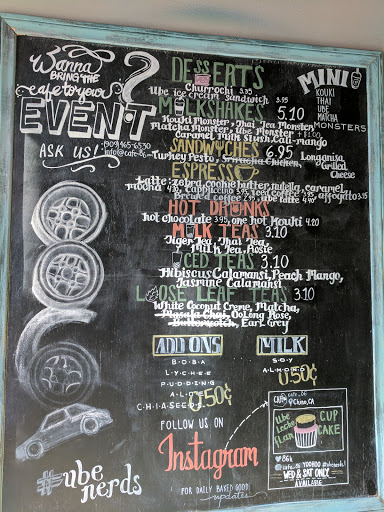 Wanna
BRING THE
cafe to your
EVENT?
ASK US!
(909)465-6530
DESSERTS
Churrochi 3.95
Ube ice cream sandwich 3.95
MILKSHAKES 5.10
Kouki Monster, Thai Tea Monster,
Matcha Monster, Ube Monster +$1.00
Caramel Milk Slush, Cali-mango
SANDWICHES 6.95
Turkey Pesto, Sriracha Chicken, Longanisa,
Grilled
Cheese
ESPRESSO
Latte: zebra, cookie butter, nutella, caramel,
mocha 4.95, cappuccino 3.95, iced coffee 3.95, affogato 3.95
Brewed coffee 2.95, ube latte 4.90
HOT DRINKS
hot chocolate 3.95, one hot Kouki 4.20
MILK TEAS 3.10
Tiger Tea, Thai Tea,
Milk Tea, Rosie
ICED TEAS 3.10
Hibiscus Calamansi, Peach Mango,
Jasmine Calamansi
LOOSE LEAF TEAS 3.10
White Coconut Creme, Matcha,
Masala Chai, Oolong Rose,
Butterscotch, Earl Grey
MINI
KOUKI
THAI
UBE
MATCHA
MONSTERS
ADD ONS
BOBA
LYCHEE
PUDDING
ALOE
CHIA SEEDS
0.50¢
MILK
SOY
ALMOND
0.50¢
FOLLOW US ON
Instagram
FOR DAILY BAKED GOOD
updates
cafe_06
Chino, CA
Ube
Leche
Flan
CUP
CAKE
86k
WED & SAT ONLY
AVAILABLE
#ube
nerds